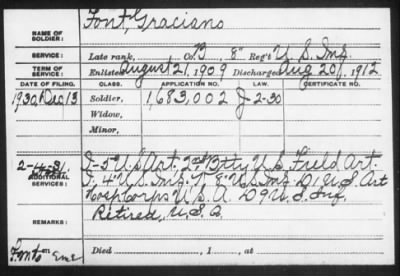 NAME OF SOLDIER: Font, Graciano
SERVICE: Late rank, Co. B 8" Reg't U S Inf
TERM OF SERVICE: Enlisted August 21, 1909 Discharged Aug 20, 1912
DATE OF FILING. CLASS. APPLICATION NO. LAW. CERTIFICATE NO.
1930 Dec 13 Soldier, 1,683,002 J-2-30
Widow,
Minor,
2-4-31, I-5 U S Art, 2nd Btty U.S. Field Art.
ADDITIONAL SERVICES: I, 4 U.S. Inf. 8" U S Inf D, 1 U.S. Art
Hosp Corps U S A D 9 U.S. Inf.
REMARKS: Retired, U.S.A.
Died , 1 , at